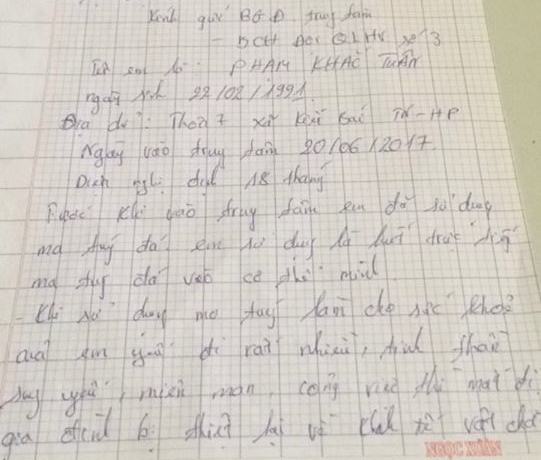 Kính gửi BGĐ trung tâm
- BCH Đội QLHV số 3
Tên em là: PHẠM KHẮC TUẤN
ngày sinh 22/02/1991
Địa chỉ: Thôn 7 xã Kiền Bái TN-HP
Ngày vào trung tâm 20/06/2017.
18 tháng
Trước khi vào trung tâm em đã sử dụng
ma túy đá em sử dụng là trực tiếp
ma túy đá vào cơ thể mình
- Khi sử dụng ma túy làm cho sức khoẻ
của em yếu đi rất nhiều, tinh thần
suy yếu, miên man, công việc thì mất đi
gia đình bị thiệt hại về kinh tế vật chất
NGỌC XUÂN